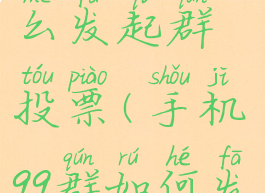 么发起群
tóu piào shǒu jī
投票(手机
qún rú hé fā
99群如何发